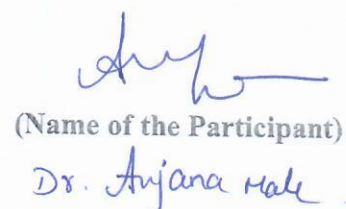 (Name of the Participant)
Dr. Anjana Male